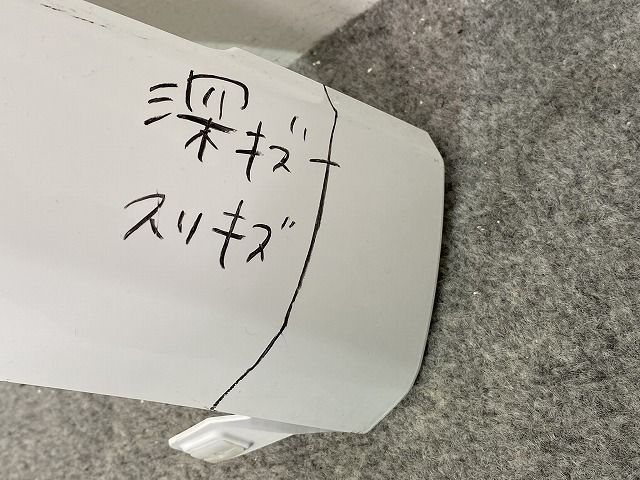 深キズ
スリキズ